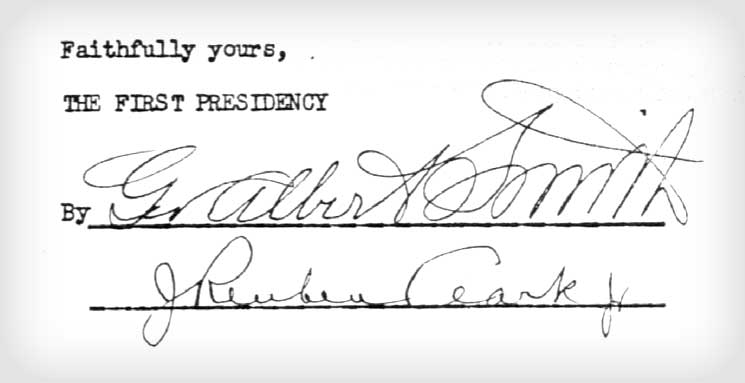 Faithfully yours,
THE FIRST PRESIDENCY
By G. Albert Smith
J Reuben Clark Jr